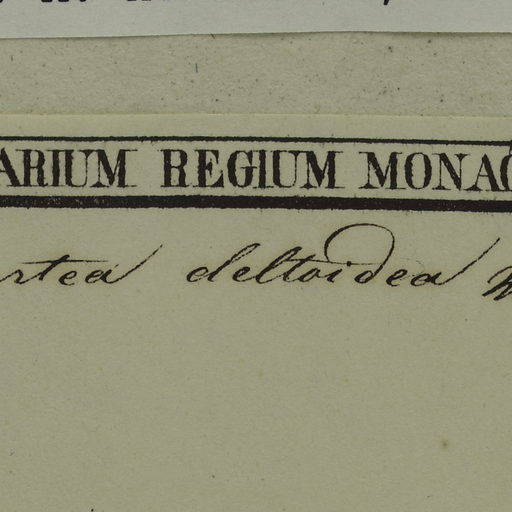 ARIUM REGIUM MONAC
rtea deltoidea